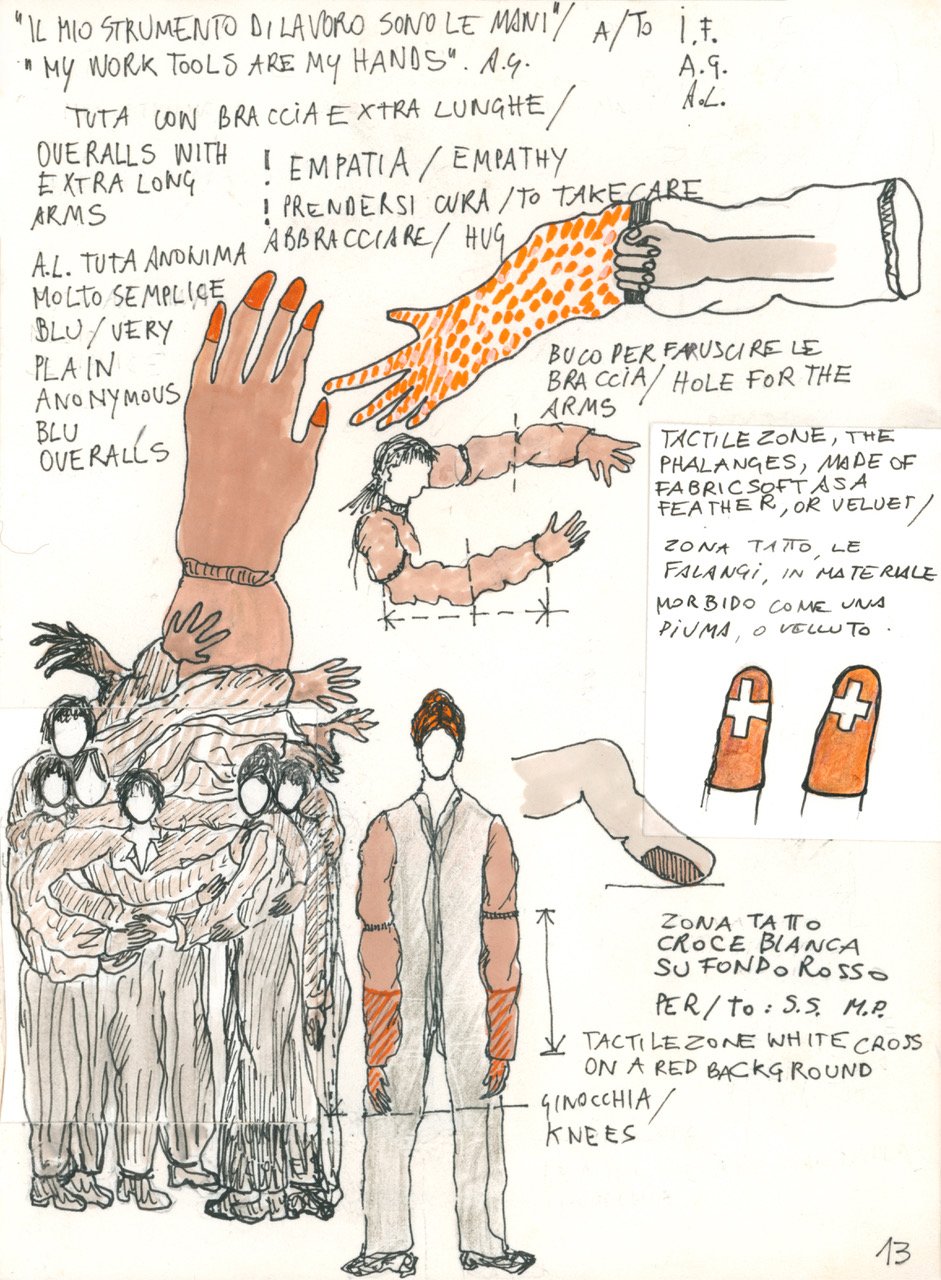 "IL MIO STRUMENTO DI LAVORO SONO LE MANI"/
"MY WORK TOOLS ARE MY HANDS". A.G.
A/TO I.F.
A.G.
A.L.
TUTA CON BRACCIA EXTRA LUNGHE/
OVERALLS WITH
EXTRA LONG
ARMS
! EMPATIA / EMPATHY
! PRENDERSI CURA / TO TAKE CARE
ABBRACCIARE / HUG
A.L. TUTA ANONIMA
MOLTO SEMPLICE
BLU / VERY
PLAIN
ANONYMOUS
BLU
OVERALLS
BUCO PER FAR USCIRE LE
BRACCIA / HOLE FOR THE
ARMS
TACTILE ZONE, THE
PHALANGES, MADE OF
FABRIC SOFT AS A
FEATHER, OR VELVET/
ZONA TATTO, LE
FALANGI, IN MATERIALE
MORBIDO COME UNA
PIUMA, O VELLUTO.
ZONA TATTO
CROCE BIANCA
SU FONDO ROSSO
PER/TO: S.S. M.P.
TACTILE ZONE WHITE CROSS
ON A RED BACKGROUND
GINOCCHIA/
KNEES
13